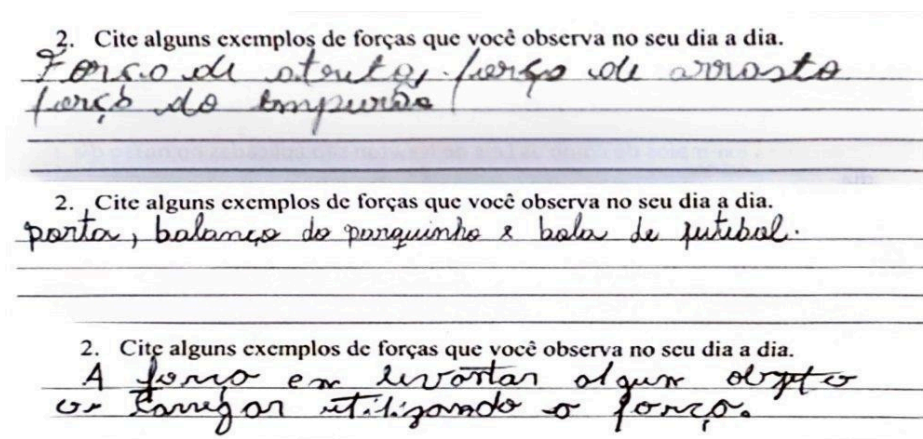 2. Cite alguns exemplos de forças que você observa no seu dia a dia.
Força de atrito, força de arrasto
força do empurrão
2. Cite alguns exemplos de forças que você observa no seu dia a dia.
porta, balanço do parquinho e bola de futebol.
2. Cite alguns exemplos de forças que você observa no seu dia a dia.
A força em levantar algum objeto
ou carregar utilizando a força.